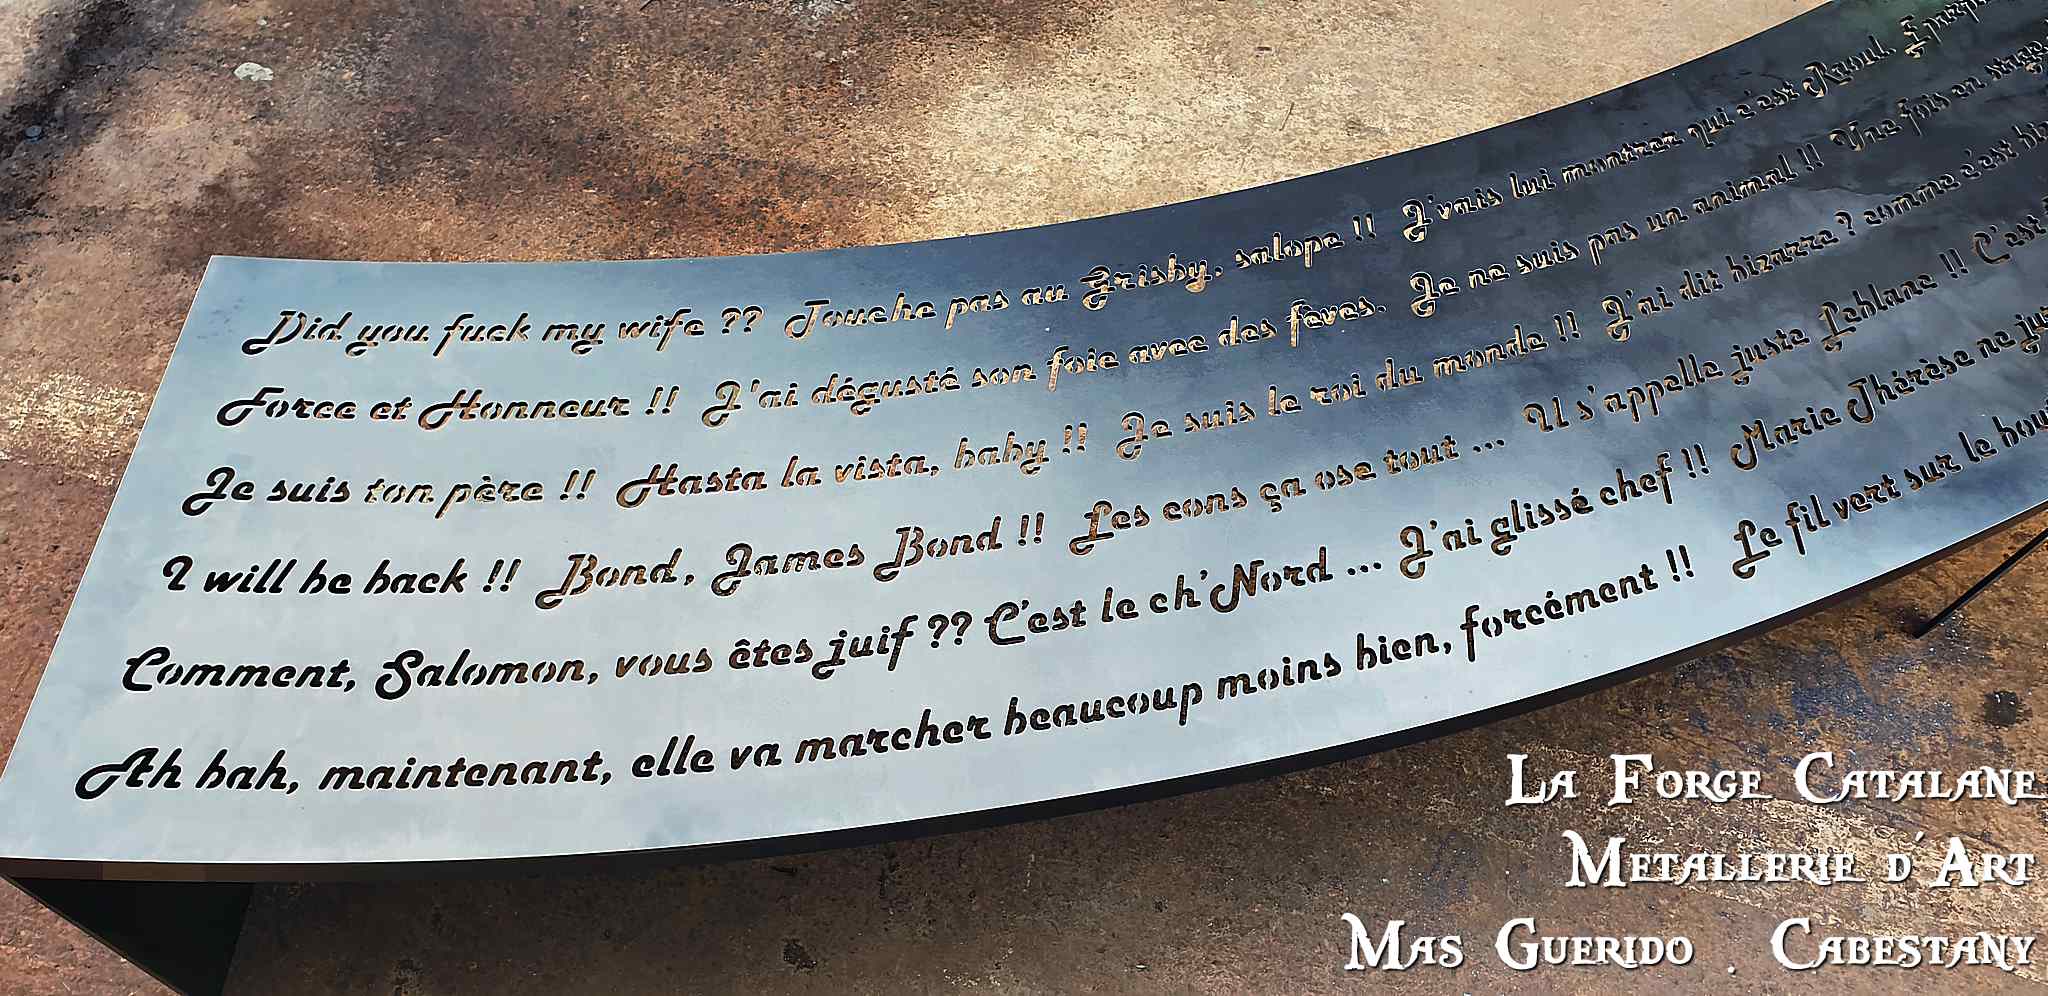 Did you fuck my wife ?? Touche pas au Grisby, salope !! J'vais lui montrer qui c'est Raoul.
Force et Honneur !! J'ai dégusté son foie avec des fèves. Je ne suis pas un animal !! Une fois en stage
Je suis ton père !! Hasta la vista, baby !! Je suis le roi du monde !! J'ai dit bizarre ? comme c'est
I will be back !! Bond, James Bond !! Les cons ça ose tout ... Il s'appelle juste Leblanc !! C'est
Comment, Salomon, vous êtes juif ?? C'est le ch'Nord ... J'ai glissé chef !! Marie Thérèse ne
Ah bah, maintenant, elle va marcher beaucoup moins bien, forcément !! Le fil vert sur le
La Forge Catalane
Metallerie d'Art
Mas Guerido . Cabestany